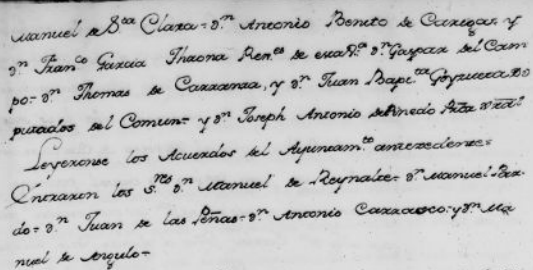 Manuel de Sta Clara = Dn Antonio Benito de Cariga = y
Dn Franco Garcia Thaona Rexes de esta Dn Gaspar del Cam
po = Dn Thomas de Carranza, y Dn Juan Bapta Goyzueta Di
putados del Comun = y Dn Joseph Antonio de Pinedo
Leyeronse los Acuerdos del Ayuntamto antecedente =
Entraron los Sres Dn Manuel de Reynalte = Dn Manuel Par
do = Dn Juan de las Peñas = Dn Antonio Carrasco = y Dn Ma
nuel de Angulo =